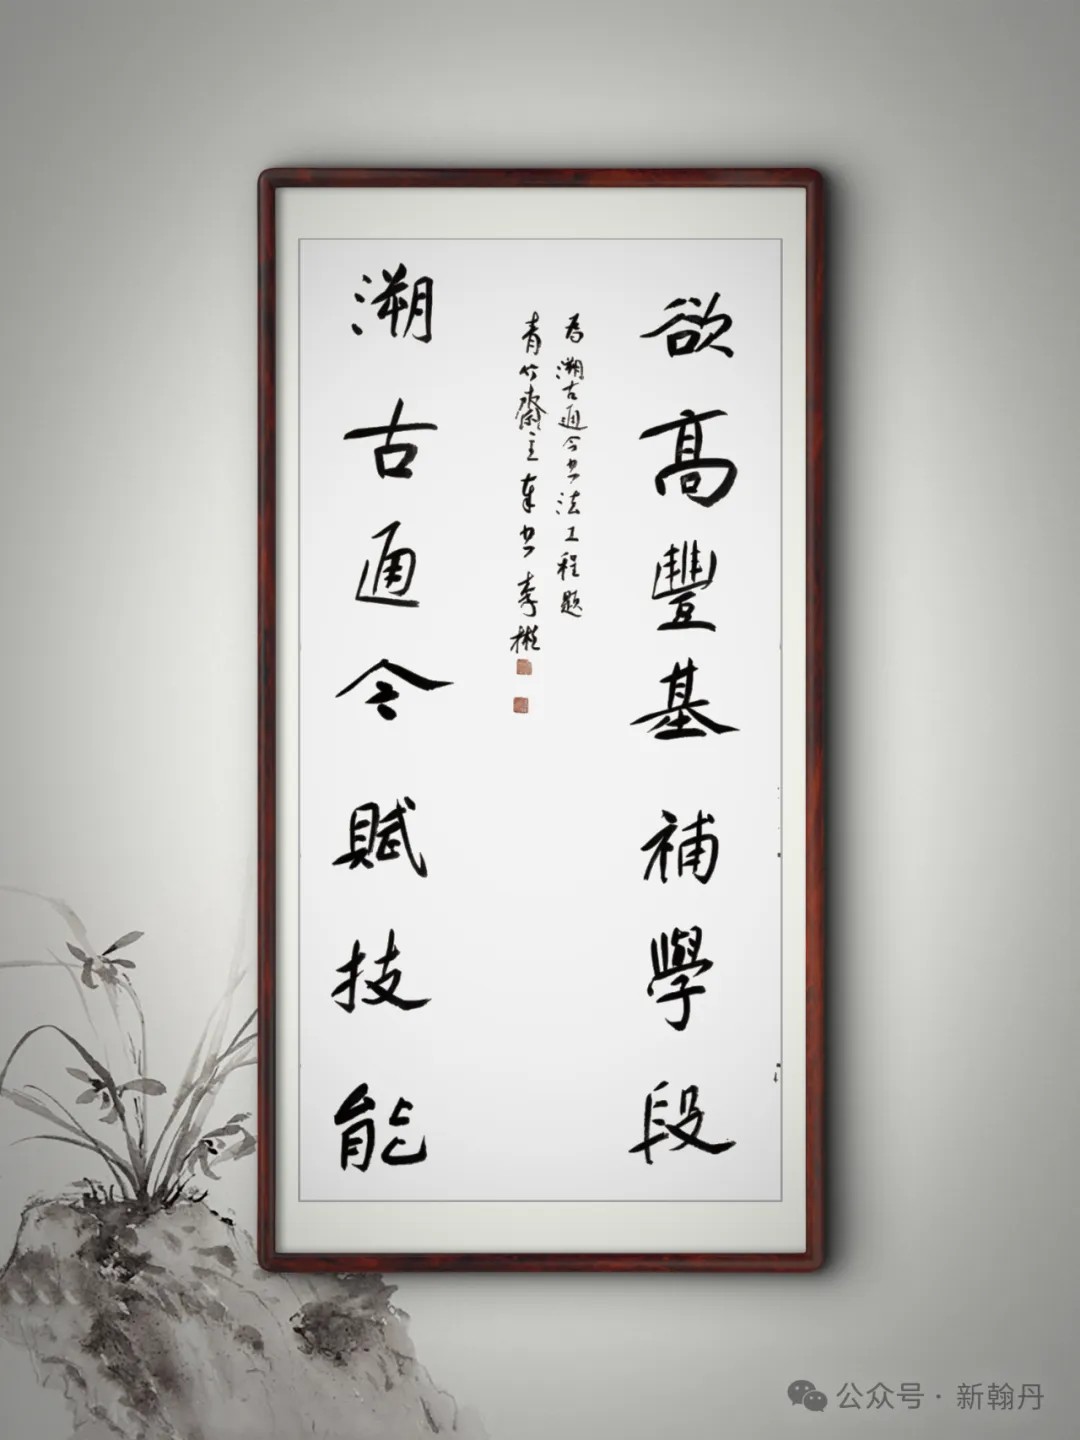 欲高豐基補學段
溯古通今賦技能
為溯古通今书法工程题
青竹齋主奉书李
公众号·新翰丹